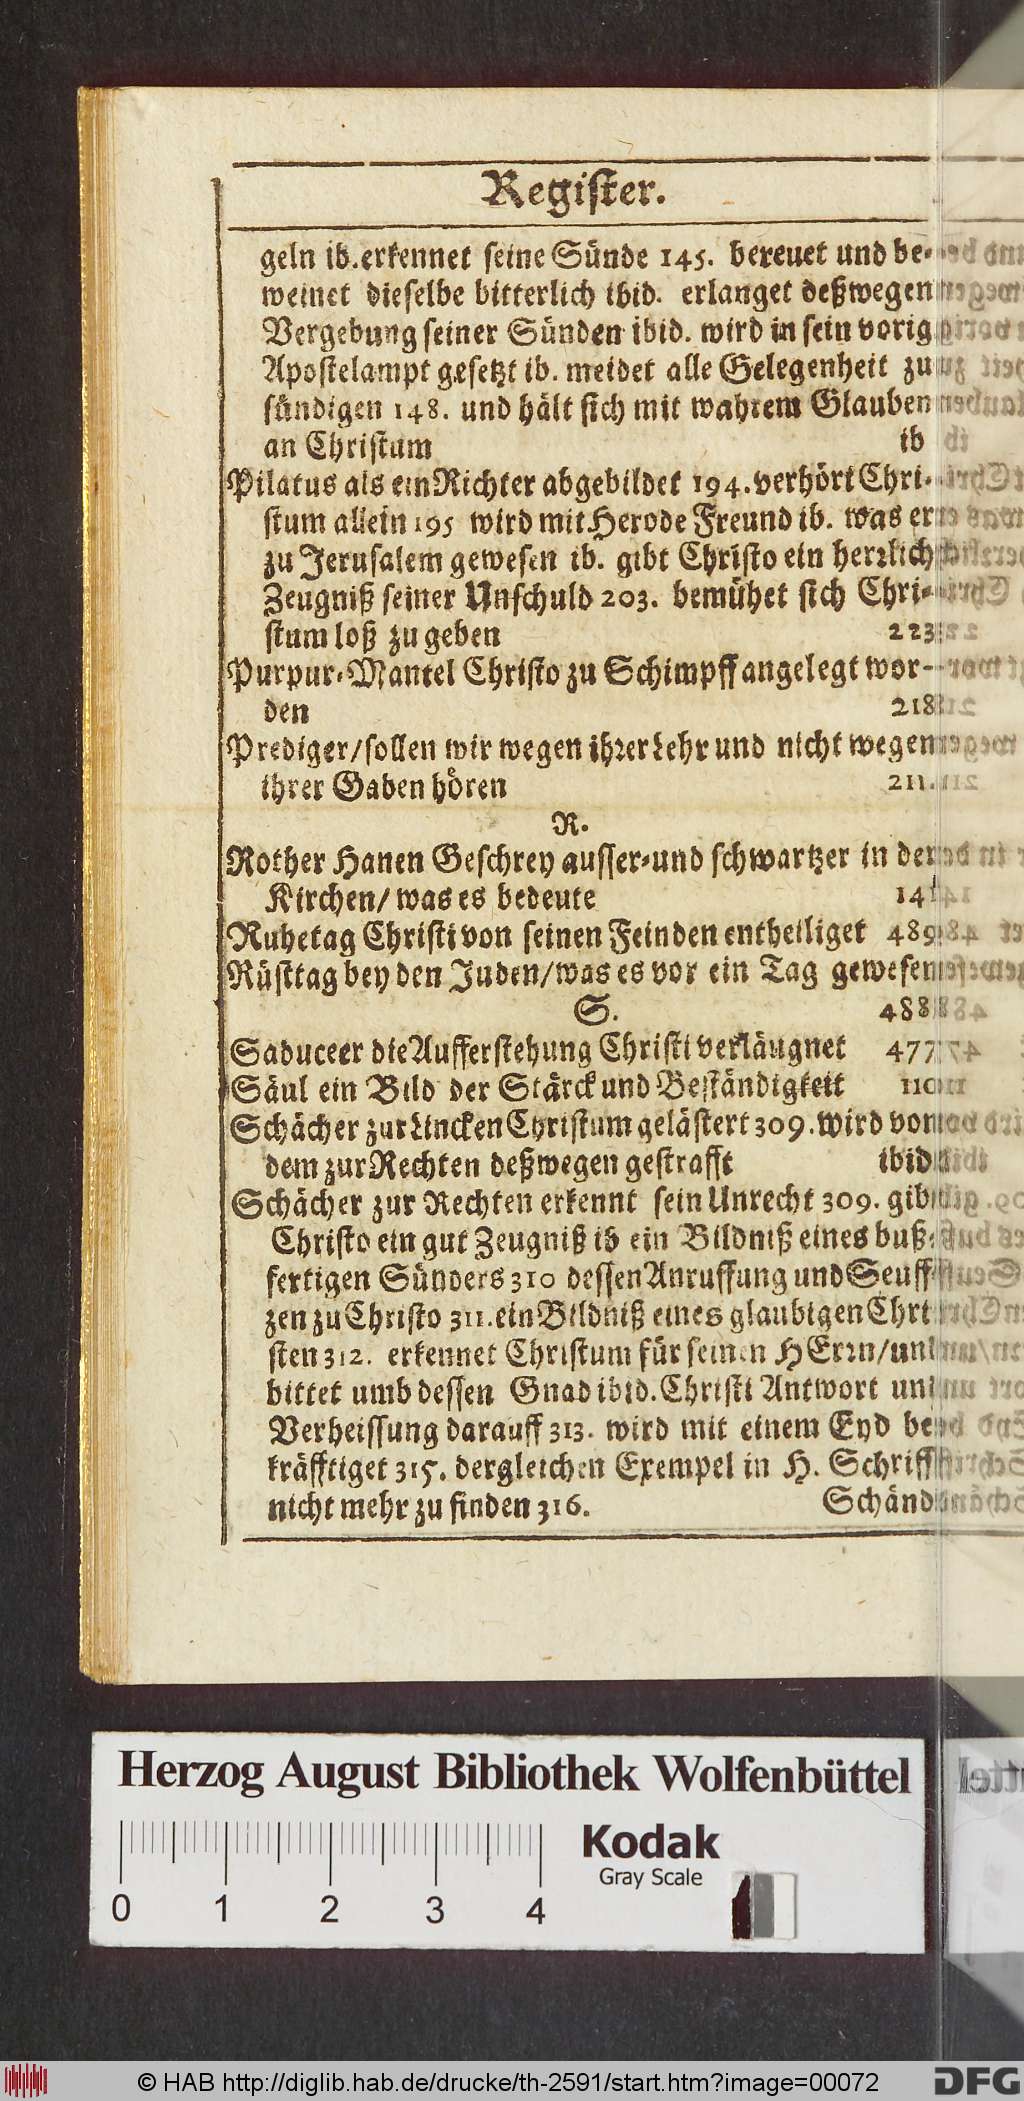 Register.
geln ib. erkennet seine Sünde 145. bereuet und be-
weinet dieselbe bitterlich ibid. erlanget deßwegen
Vergebung seiner Sünden ibid. wird in sein vorig
Apostelampt gesetzt ib. meidet alle Gelegenheit zu
sündigen 148. und hält sich mit wahrem Glauben
an Christum ib
Pilatus als ein Richter abgebildet 194. verhört Chri-
stum allein 195 wird mit Herode Freund ib. was er
zu Jerusalem gewesen ib. gibt Christo ein herrlich
Zeugniß seiner Unschuld 203. bemühet sich Chri-
stum loß zu geben 223
Purpur-Mantel Christo zu Schimpff angelegt wor-
den 218
Prediger/sollen wir wegen ihrer Lehr und nicht wegen
ihrer Gaben hören 211.
R.
Rother Hanen Geschrey ausser-und schwartzer in der
Kirchen/ was es bedeute 141
Ruhetag Christi von seinen Feinden entheiliget 489
Rüsttag bey den Juden/was es vor ein Tag gewesen
S. 488
Saduceer die Aufferstehung Christi verläugnet 477
Säul ein Bild der Stärck und Beständigkeit 110
Schächer zur Lincken Christum gelästert 309. wird von
dem zur Rechten deßwegen gestrafft ibid
Schächer zur Rechten erkennt sein Unrecht 309. gib
Christo ein gut Zeugniß ib ein Bildniß eines buß-
fertigen Sünders 310 dessen Anruffung und Seuff
zen zu Christo 311. ein Bildniß eines glaubigen Chri
sten 312. erkennet Christum für seinen HErrn/un
bittet umb dessen Gnad ibid. Christi Antwort un
Verheissung darauff 313. wird mit einem Eyd be
kräfftiget 315. dergleichen Exempel in H. Schriff
nicht mehr zu finden 316. Schänd
Herzog August Bibliothek Wolfenbüttel
Kodak
Gray Scale
0 1 2 3 4
© HAB http://diglib.hab.de/drucke/th-2591/start.htm?image=00072
DFG